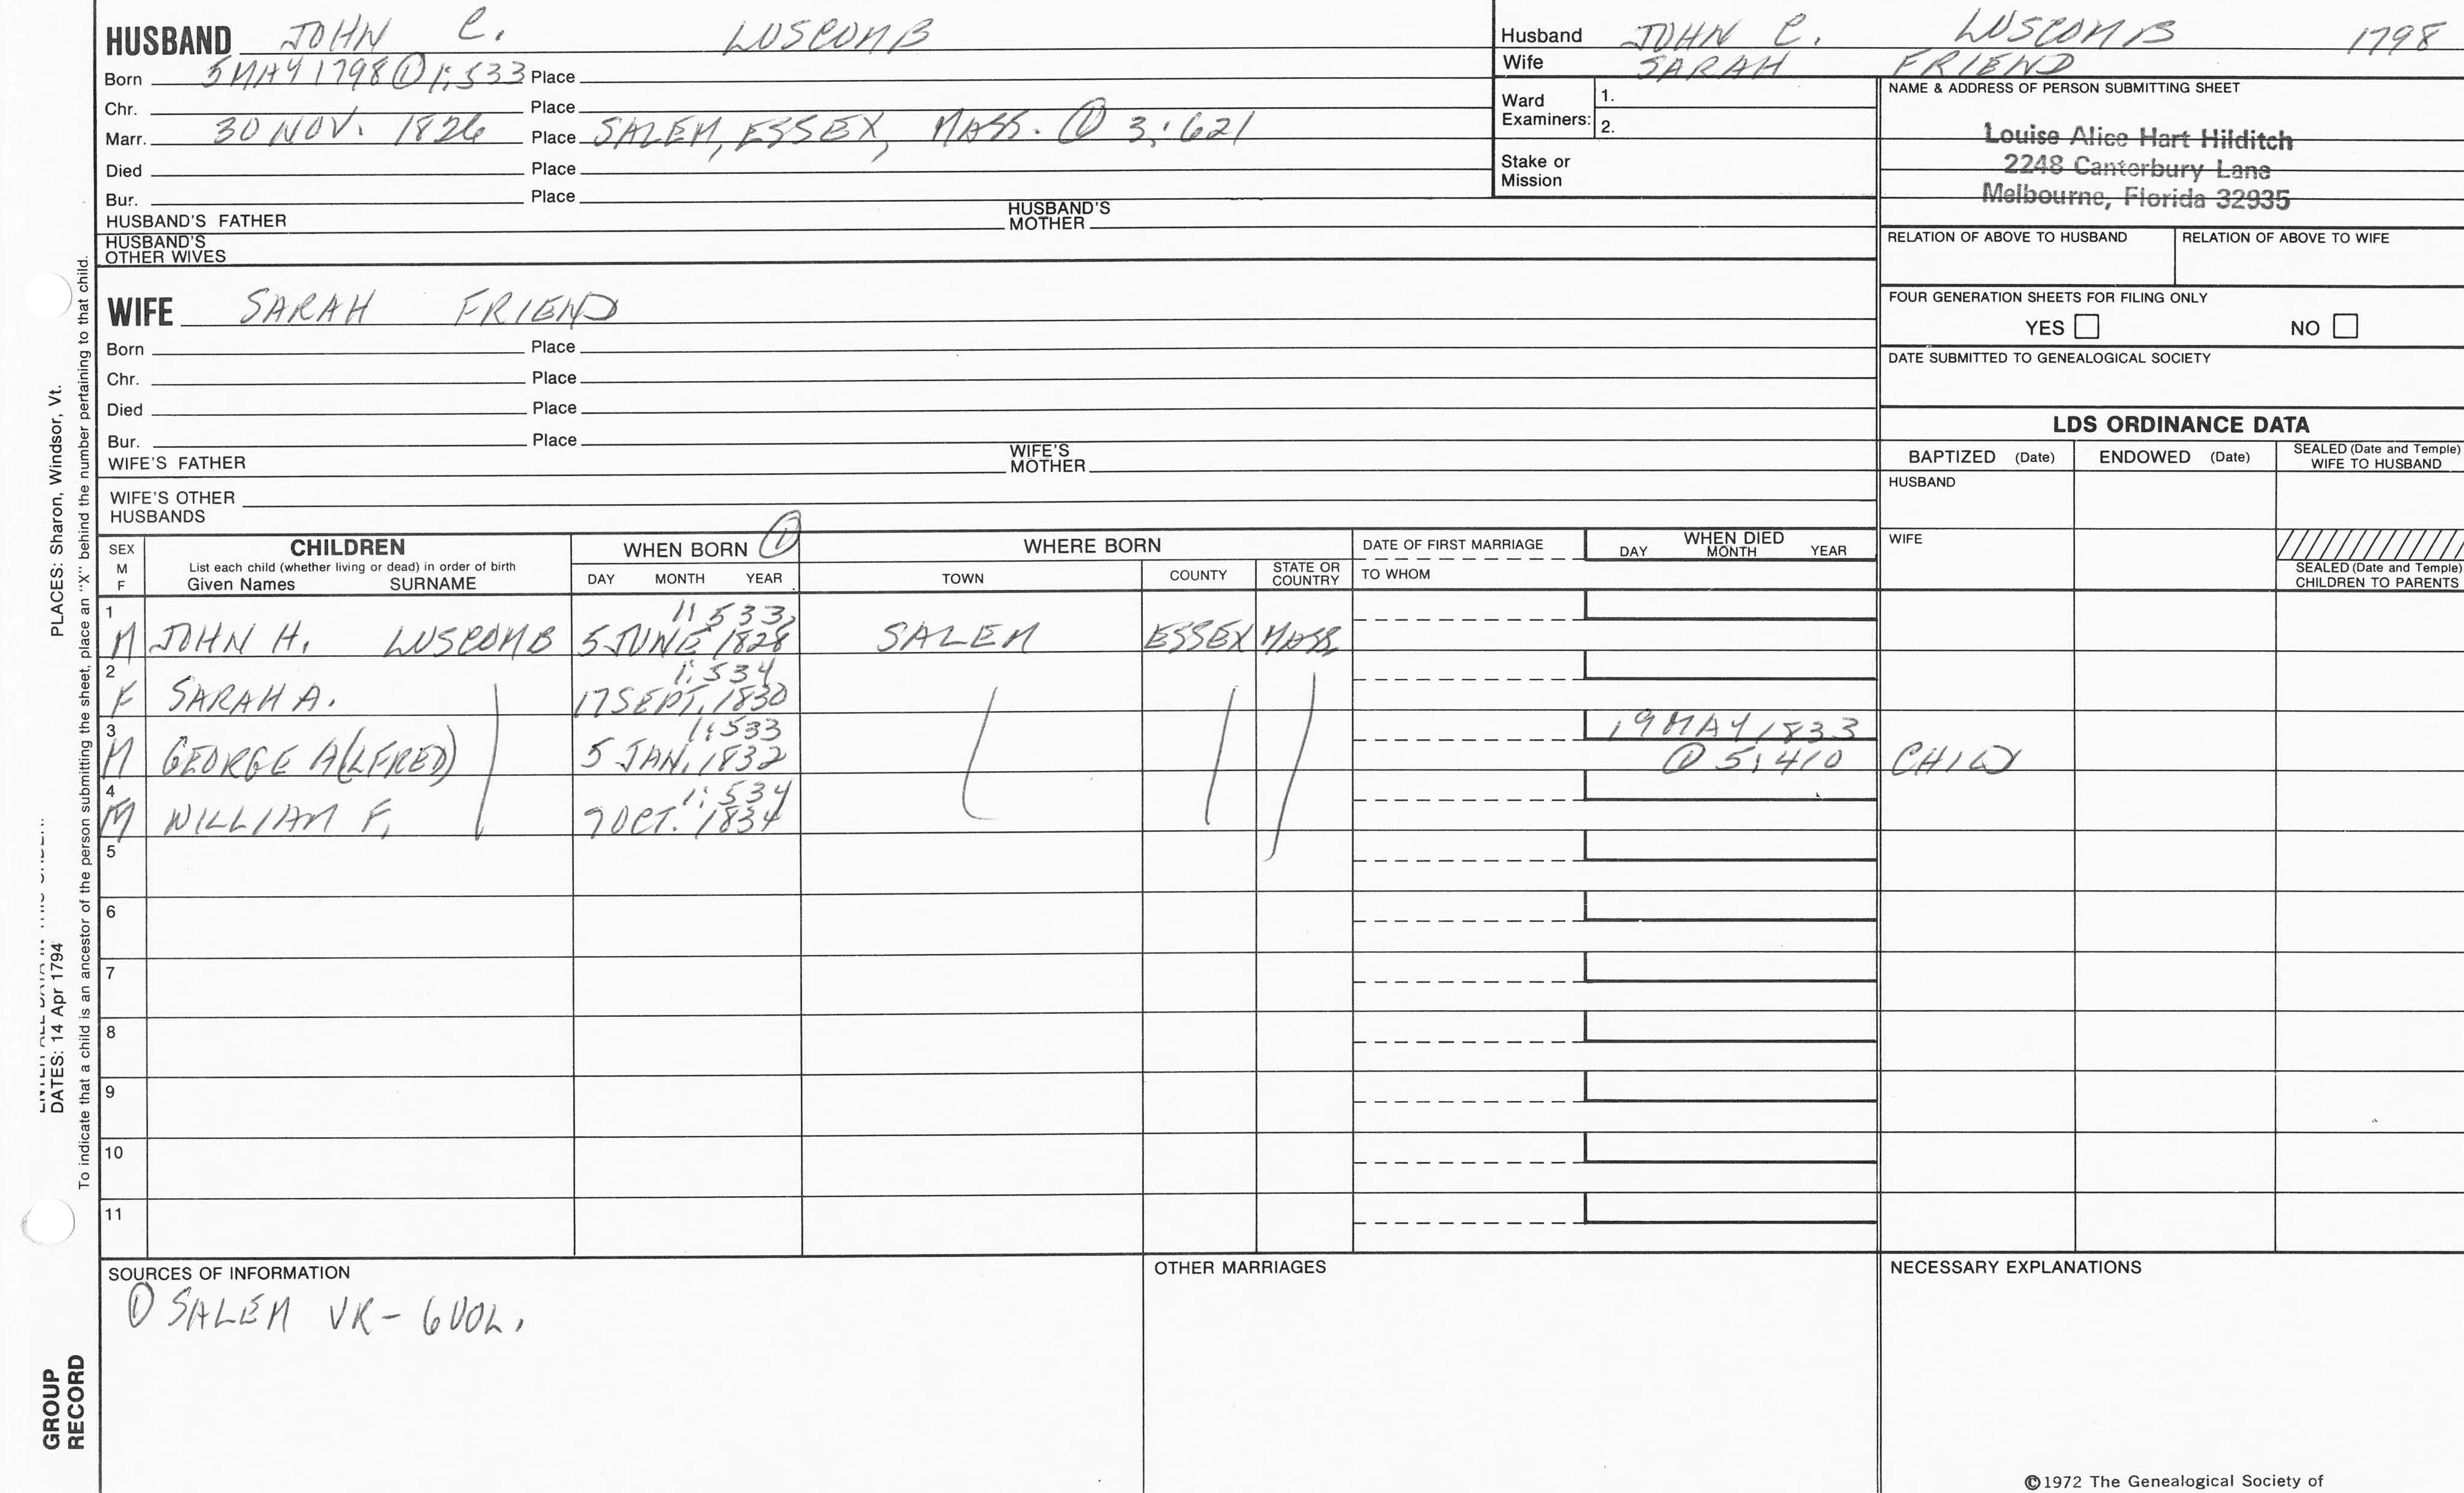 HUSBAND JOHN C. LUSCOMB
Born 5 MAY 1798 ① 1:533 Place
Chr. Place
Marr. 30 NOV. 1826 Place SALEM, ESSEX, MASS. ① 3:621
Died Place
Bur. Place
HUSBAND'S FATHER HUSBAND'S MOTHER
HUSBAND'S OTHER WIVES
Husband JOHN C. LUSCOMB 1798
Wife SARAH FRIEND
Ward Examiners: 1.
2.
Stake or Mission
NAME & ADDRESS OF PERSON SUBMITTING SHEET
Louise Alice Hart Hilditch
2248 Canterbury Lane
Melbourne, Florida 32935
RELATION OF ABOVE TO HUSBAND RELATION OF ABOVE TO WIFE
FOUR GENERATION SHEETS FOR FILING ONLY
YES NO
DATE SUBMITTED TO GENEALOGICAL SOCIETY
WIFE SARAH FRIEND
Born Place
Chr. Place
Died Place
Bur. Place
WIFE'S FATHER WIFE'S MOTHER
WIFE'S OTHER HUSBANDS
LDS ORDINANCE DATA
BAPTIZED (Date) ENDOWED (Date) SEALED (Date and Temple) WIFE TO HUSBAND
HUSBAND
WIFE
SEALED (Date and Temple) CHILDREN TO PARENTS
SEX M F
CHILDREN
List each child (whether living or dead) in order of birth
Given Names SURNAME
WHEN BORN ①
DAY MONTH YEAR
WHERE BORN
TOWN COUNTY STATE OR COUNTRY
DATE OF FIRST MARRIAGE
TO WHOM
WHEN DIED
DAY MONTH YEAR
1 1:533,
M JOHN H. LUSCOMB 5 JUNE 1828 SALEM ESSEX MASS.
2 1:534
F SARAH A. 17 SEPT. 1830
3 1:533 19 MAY 1833
M GEORGE A(LFRED) 5 JAN. 1832 ① 5:410 CHILD
4 1:534
M WILLIAM F. 9 OCT. 1834
5
6
7
8
9
10
11
SOURCES OF INFORMATION
① SALEM VR - 6 VOL.
OTHER MARRIAGES
NECESSARY EXPLANATIONS
©1972 The Genealogical Society of
PLACES: Sharon, Windsor, Vt.
DATES: 14 Apr 1794
To indicate that a child is an ancestor of the person submitting the sheet, place an "X" behind the number pertaining to that child.
GROUP
RECORD